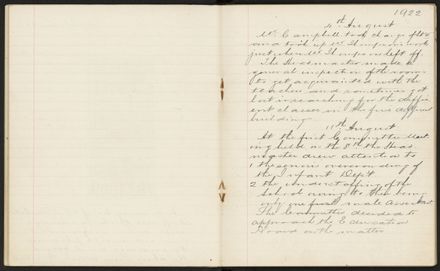 1922
4th August
Mr Campbell took charge of
and took up Mr Simpson's work
just where Mr Simpson left off
The Headmaster made a
general inspection of the rooms
to get acquainted with the
teachers and sometimes got
lost in searching for the differ
ent classes in the five different
buildings.
11th August
At the first Committee Meet
ing held on the 8th the Head
master drew attention to
1 the serious overcrowding of
the Infant Dept
2 the understaffing of the
School owing to there being
only one male Assistant
The Committee decided to
approach the Education
Board on the matter